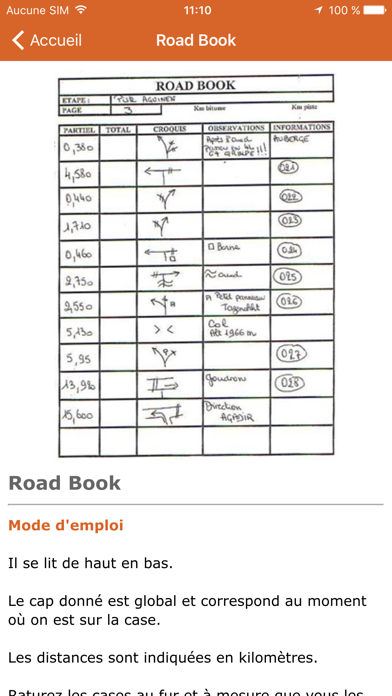 Aucune SIM 11:10 100 %
Accueil Road Book
ROAD BOOK
ETAPE :
PAGE 3 Km bitume Km piste
PARTIEL TOTAL CROQUIS OBSERVATIONS INFORMATIONS
0,380 Après l'oued AUBERGE
4,580 021
0,440 022
1,710 023
0,460 Borne 024
2,750 oued 025
2,550 Petit panneau 026
5,130 Col
Alt 1966 m
5,95 027
13,980 Goudron 028
15,600 Direction
AGADIR
Road Book
Mode d'emploi
Il se lit de haut en bas.
Le cap donné est global et correspond au moment
où on est sur la case.
Les distances sont indiquées en kilomètres.
Raturez les cases au fur et à mesure que vous les